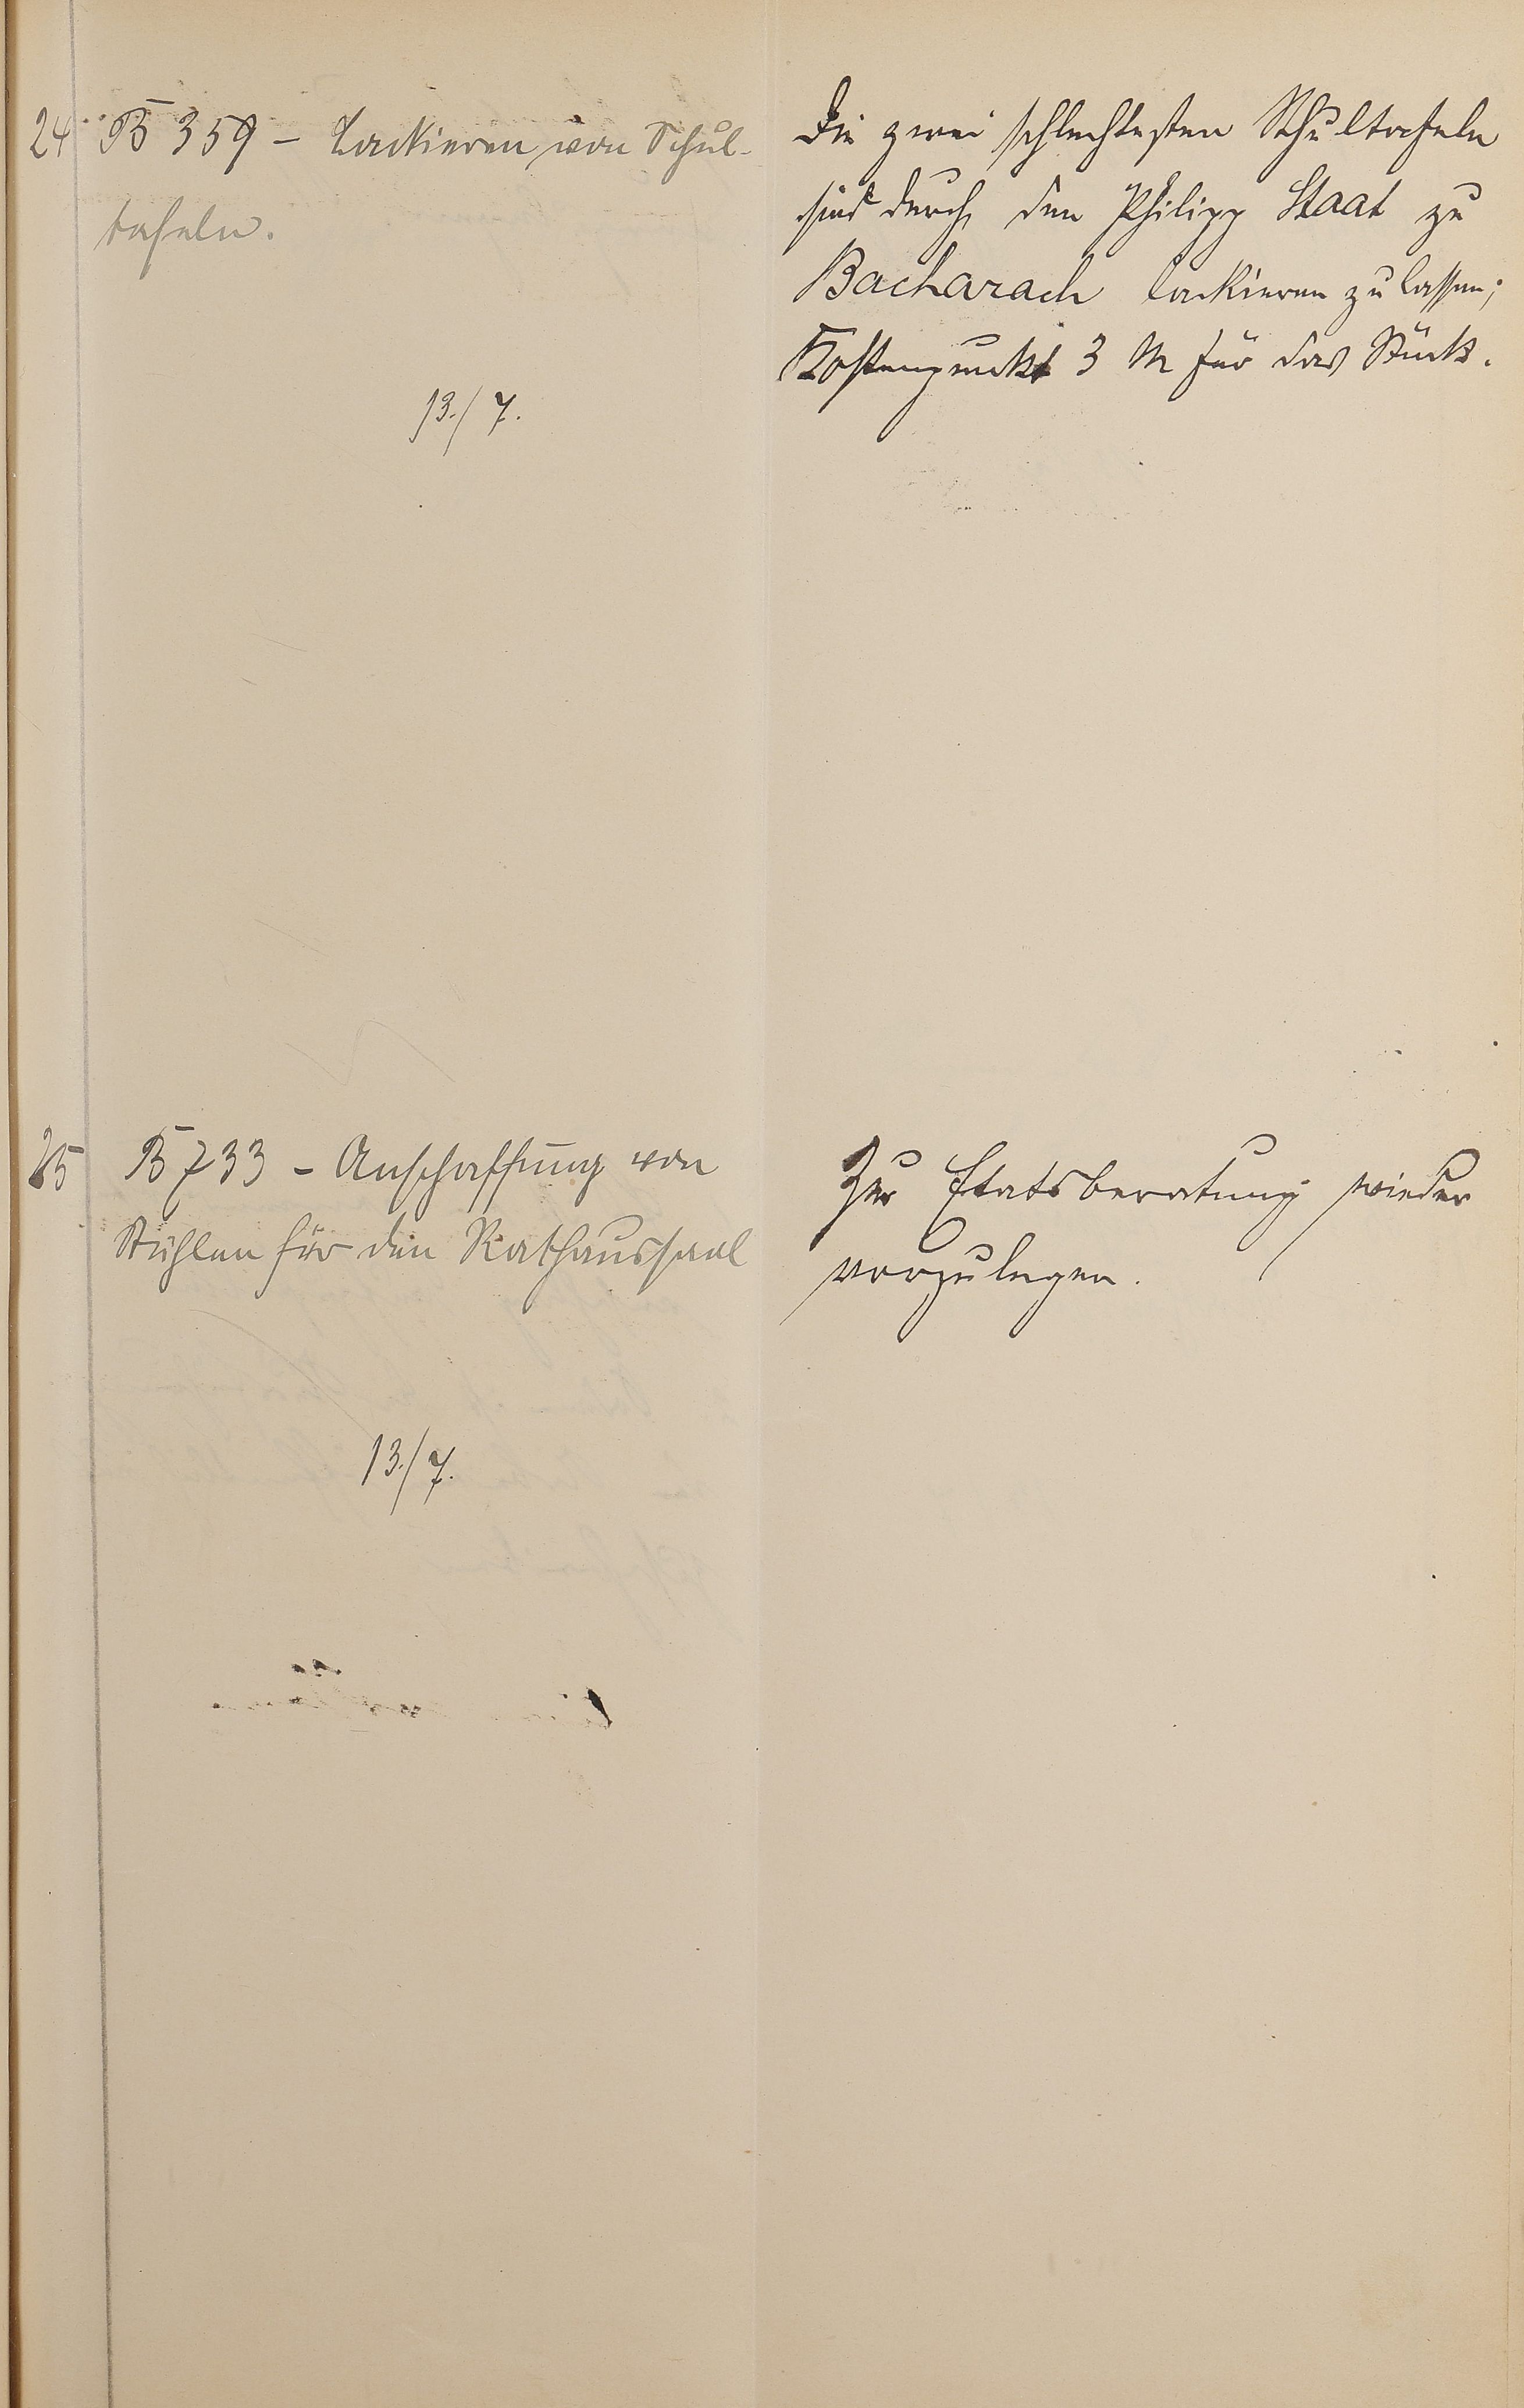 24 B 359 – Lackieren von Schul-
tafeln.
13./7.
Die zwei schlechtesten Schultafeln
sind durch den Philipp Staat zu
Bacharach lackieren zu lassen;
Kostenpunkt 3 M für das Stück.
25 B 733 – Anschaffung von
Stühlen für den Rathaussaal
13./7.
Zur Etatsberatung wieder
vorzulegen.